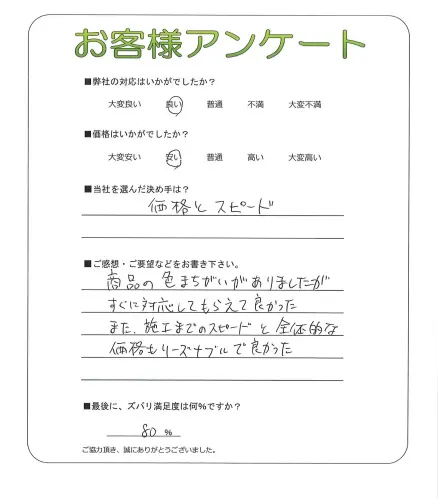 お客様アンケート
■弊社の対応はいかがでしたか?
大変良い 良い 普通 不満 大変不満
■価格はいかがでしたか?
大変安い 安い 普通 高い 大変高い
■当社を選んだ決め手は?
価格とスピード
■ご感想・ご要望などをお書き下さい。
商品の色まちがいがありましたが
すぐに対応してもらえて良かった
また、施工までのスピードと全体的な
価格もリーズナブルで良かった
■最後に、ズバリ満足度は何%ですか?
80 %
ご協力頂き、誠にありがとうございました。